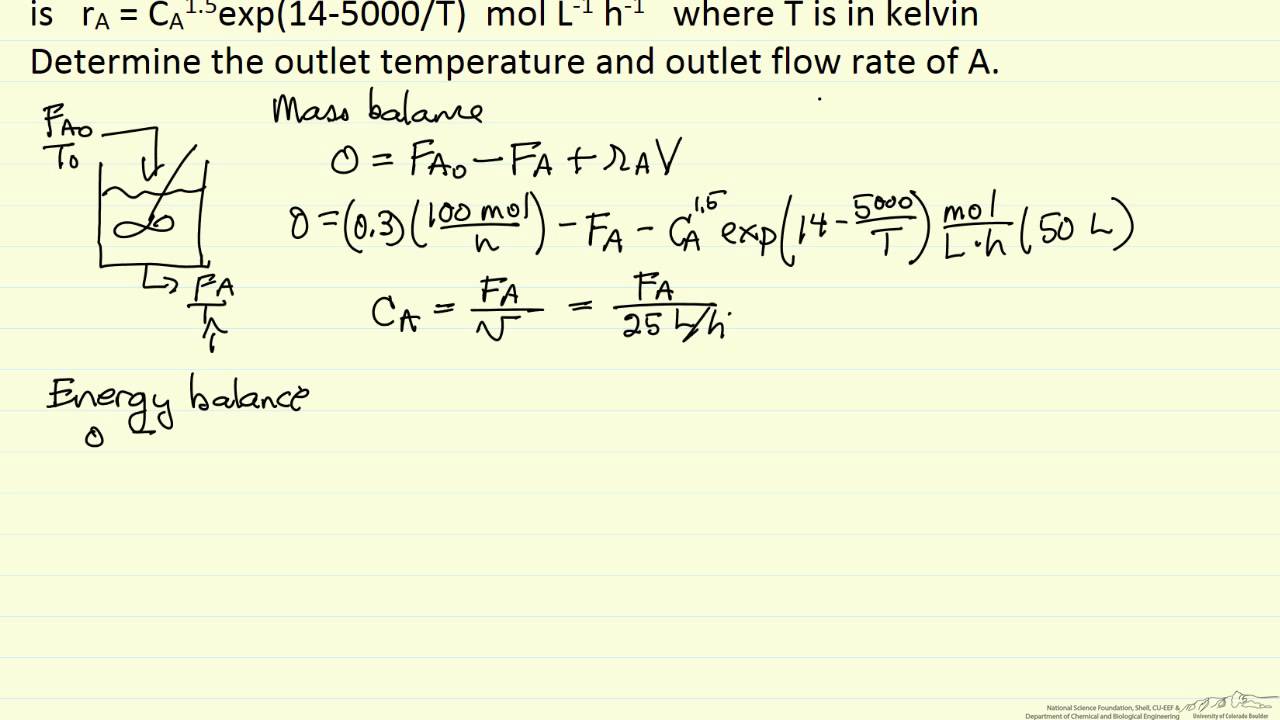 is r_A = C_A^1.5 exp(14-5000/T) mol L^-1 h^-1 where T is in kelvin
Determine the outlet temperature and outlet flow rate of A.
Mass balance
F_A0
T_0
0 = F_A0 - F_A + r_A V
0 = (0.3) (100 mol / h) - F_A - C_A^1.5 exp(14 - 5000/T) mol / L·h (50 L)
F_A
T
C_A = F_A / v = F_A / 25 L/h
Energy balance
0
National Science Foundation, Shell, CU-EEF &
Department of Chemical and Biological Engineering
University of Colorado Boulder